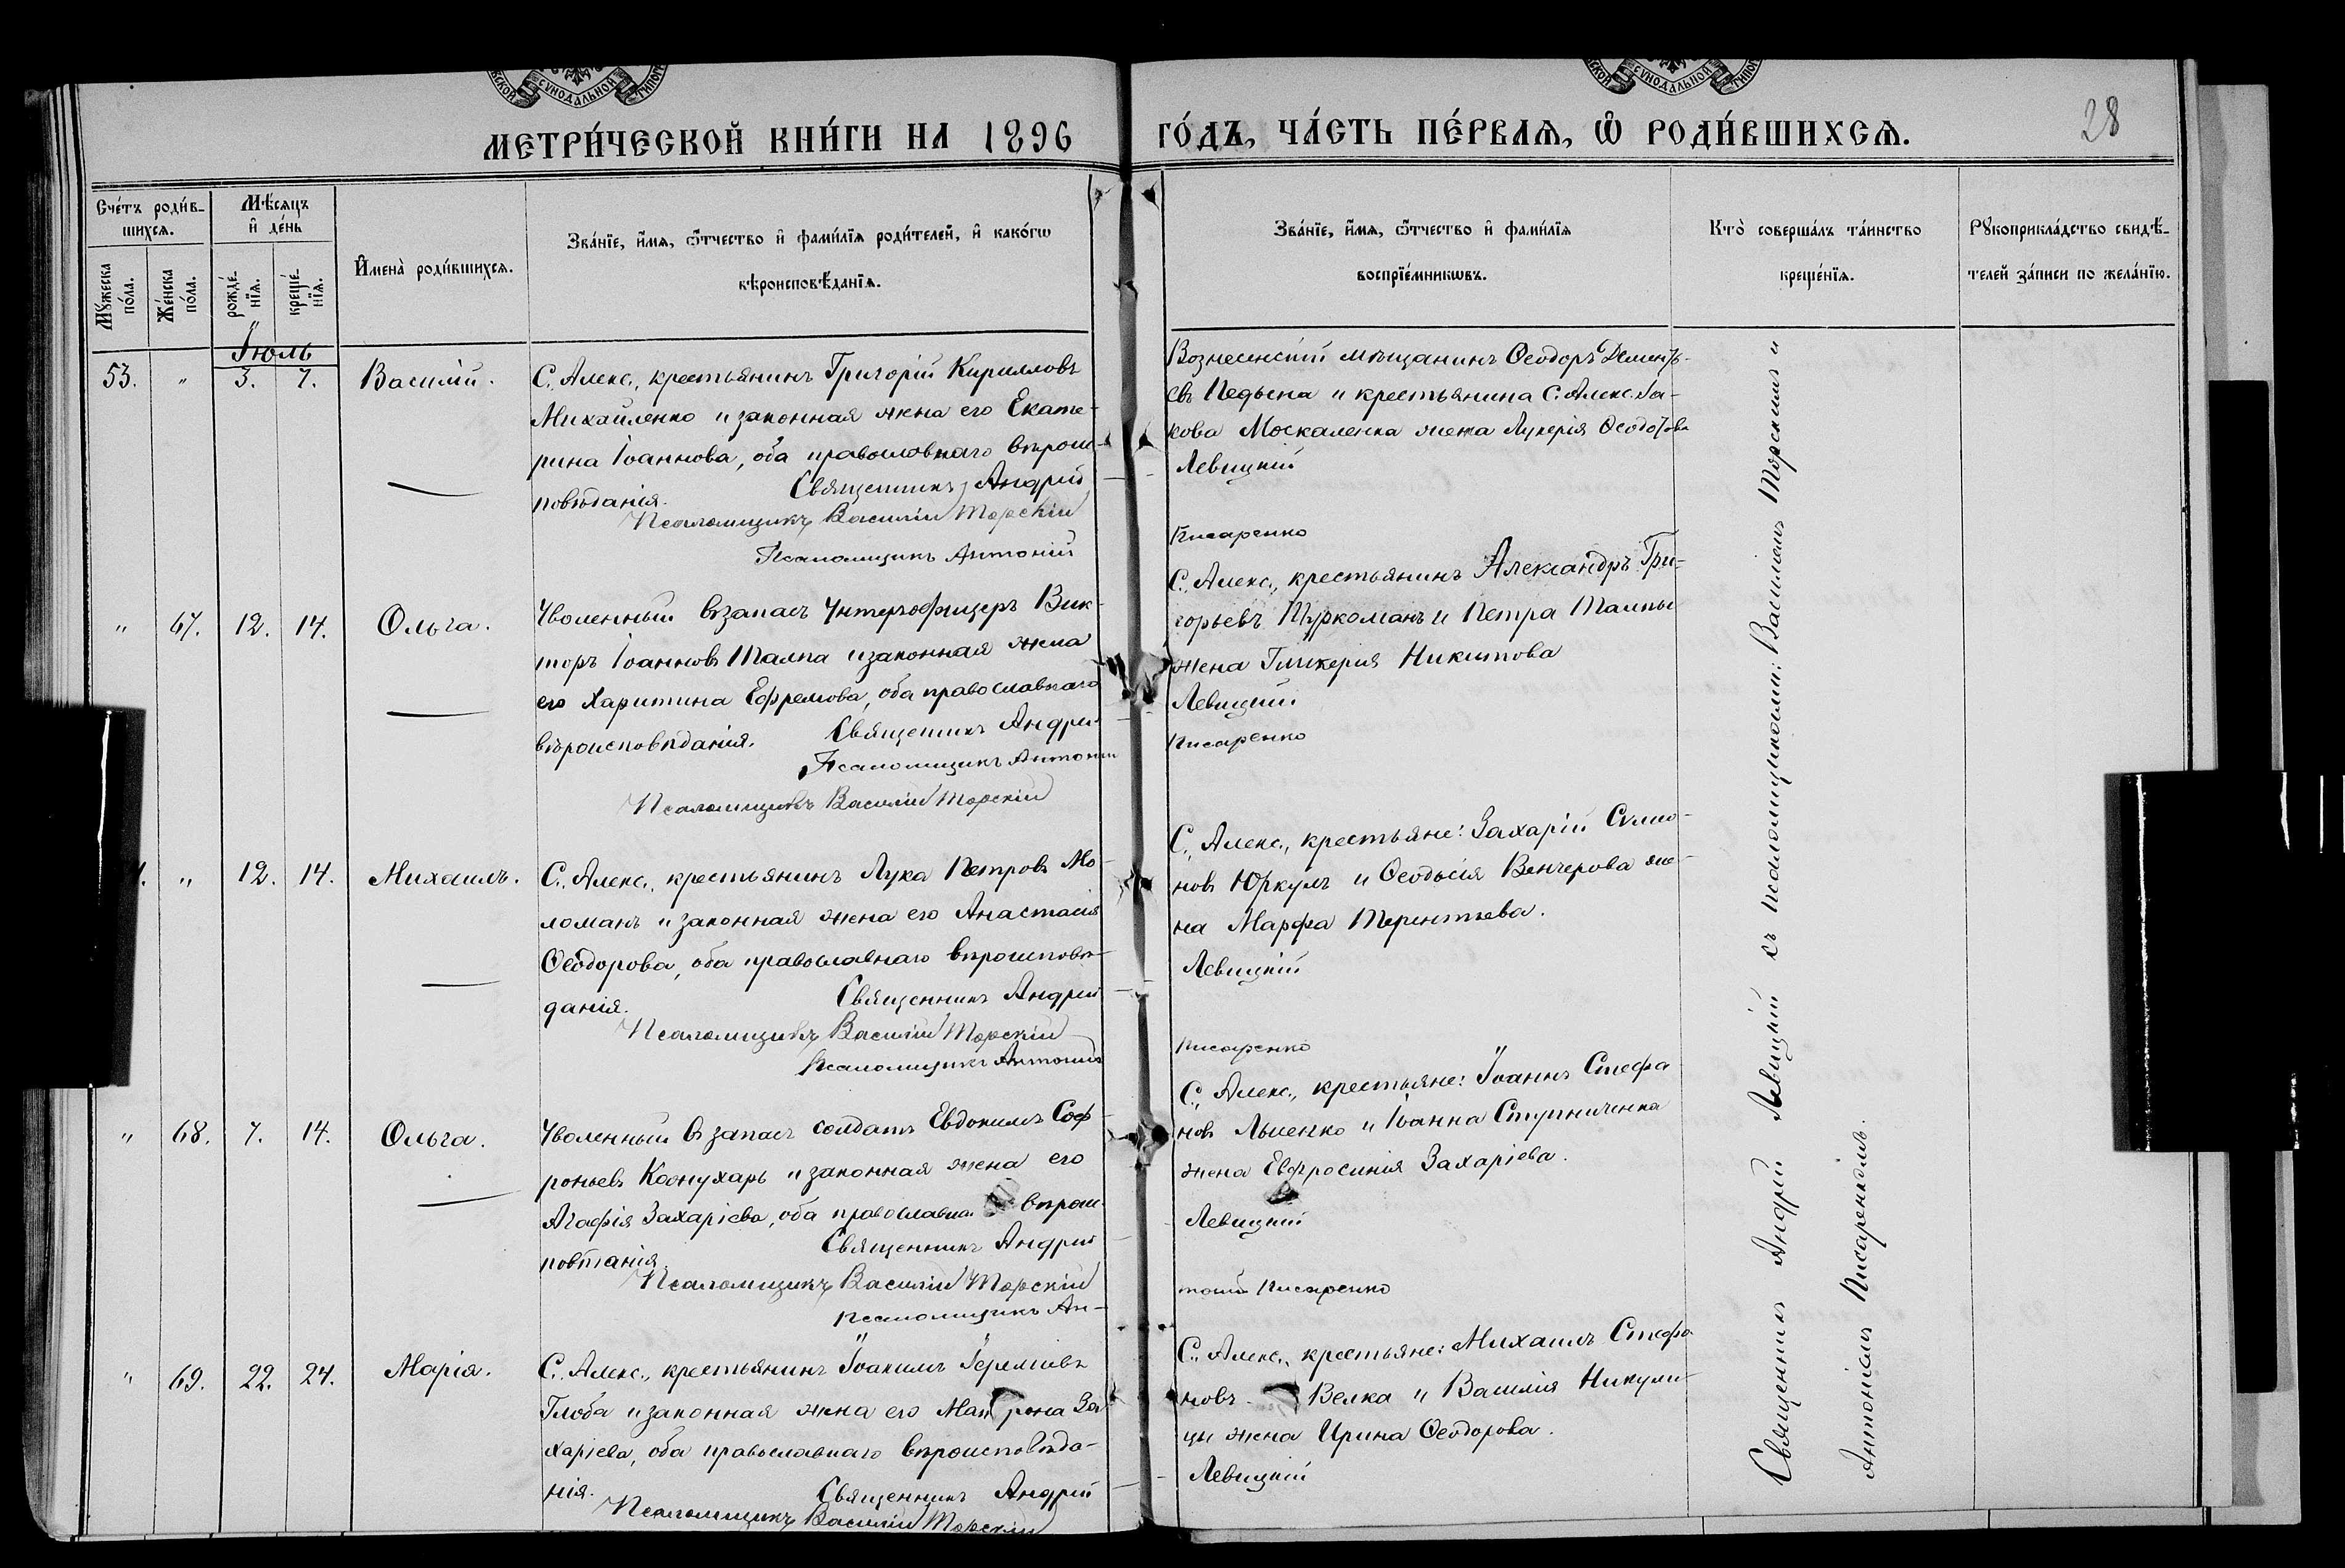 МЕТРИ́ЧЕСКОЙ КНИ́ГИ НА 1896 ГО́ДЪ, ЧА́СТЬ ПЕ́РВАѦ, Ѽ РОДИ́ВШИХСѦ.
28
Сче́тъ роди́в-
шихсѧ.
Мѣ́сѧцъ
и҆ де́нь
Мꙋ́жеска
по́ла.
Же́нска
по́ла.
рожде́-
нїѧ.
креще́-
нїѧ.
И҆мена̀ роди́вшихсѧ.
Зва́нїе, и҆́мѧ, ѻ҆́тчество и҆ фами́лїѧ роди́телей, и҆ како́гѡ
вѣроисповѣ́данїѧ.
Зва́нїе, и҆́мѧ, ѻ҆́тчество и҆ фами́лїѧ
воспрїе́мникѡвъ.
Кто̀ соверша́лъ та́инство
креще́нїѧ.
Рꙋкоприкла́дство свидѣ́-
телей за́писи по жела́нїю.
Іюль
53. " 3. 7. Василій.
С. Алекс., крестьянинъ Григорій Кирилловъ
Михайленко и законная жена его Екате-
рина Іоаннова, оба православнаго вѣроис-
повѣданія. Священникъ Андрей
Псаломщикъ Василій Торскій
Псаломщикъ Антоній
Вознесенскій мѣщанинъ Ѳеодоръ Дементь-
евъ Педьена и крестьянина С. Алекс. Іа-
кова Москаленка жена Лукерія Ѳеодотова
Левицкій
Писаренко
" 67. 12. 14. Ольга.
Уволенный въ запасъ Унтеръ-офицеръ Вик-
торъ Іоанновъ Талпа и законная жена
его Харитина Ефремова, оба православнаго
вѣроисповѣданія. Священникъ Андрей
Псаломщикъ Антоній
Псаломщикъ Василій Торскій
С. Алекс., крестьянинъ Александръ Гри-
горьевъ Туркоманъ и Петра Талпы
жена Гликерія Никитова
Левицкій
Писаренко
" 12. 14. Михаилъ.
С. Алекс., крестьянинъ Лука Петровъ Мо-
ломанъ и законная жена его Анастасія
Ѳеодорова, оба православнаго вѣроисповѣ-
данія. Священникъ Андрей
Псаломщикъ Василій Торскій
Псаломщикъ Антоній
С. Алекс., крестьяне: Захарій Симо-
новъ Юркулъ и Ѳеодосія Венчерова же-
на Марфа Терентьева.
Левицкій
Писаренко
" 68. 7. 14. Ольга.
Уволенный въ запасъ солдатъ Евдокимъ Соф-
роньевъ Коонухарь и законная жена его
Агафія Захаріева, оба православна вѣроис-
повѣданія. Священникъ Андрей
Псаломщикъ Василій Торскій
Псаломщикъ Ан-
С. Алекс., крестьяне: Іоаннъ Стефа
новъ Лысенко и Іоанна Ступниченка
жена Евфросинія Захаріева.
Левицкій
тоній Писаренко
" 69. 22. 24. Марія.
С. Алекс., крестьянинъ Іоакимъ Іереміевъ
Глоба и законная жена его Матрона За
харіева, оба православнаго вѣроисповѣда-
нія. Священникъ Андрей
Псаломщикъ Василій Торскій
С. Алекс., крестьяне: Михаилъ Стефа
новъ Велка и Василія Никули-
цы жена Ирина Ѳеодорова.
Левицкій
Священникъ Андрей Левицкій съ псаломщиками: Василіемъ Торскимъ и
Антоніемъ Писаренкомъ.